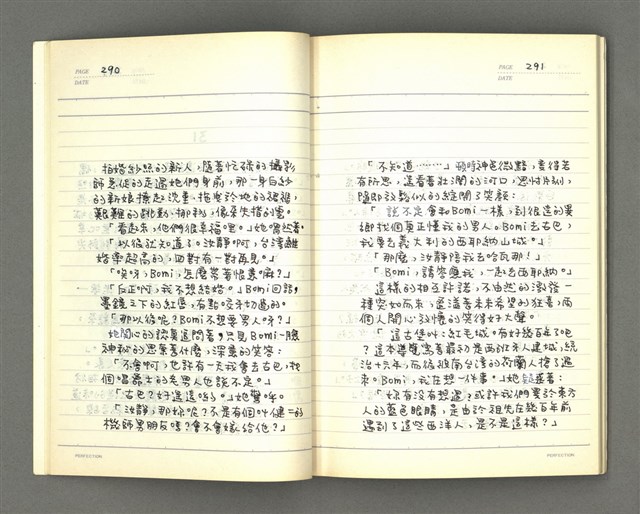 PAGE 290
DATE
拍婚紗照的新人，隨著忙碌的攝影
師急促的走過她們身前，那一身白紗
的新娘撩起沈重、拖曳於地的裙裾，
艱難的跳動、挪移，像朵失措的雲。
「看起來，他們很幸福哩。」她喟然著，
「以後就知道了。汝靜啊，台灣離
婚率超高的，四對有一對再見。」
「唉呀，Bomi，怎麼帶著恨意啊？」
「反正啊，我不想結婚。」Bomi回話，
墨鏡之下的紅唇，有點咬牙切齒的。
「那以後呢？Bomi不想要男人呀？」
她關心的認真追問著，只見Bomi一臉
神秘的思索著什麼，深意的笑答：
「不會啊，也許有一天我會去古巴，找
個唱爵士的老男人也說不定。」
「古巴？好遙遠喲。」她驚呼。
「汝靜，那妳呢？不是有個叫健一的
機師男朋友嗎？會不會嫁給他？」
PERFECTION
PAGE 291
DATE
「不知道………」頓時神色微黯，變得若
有所思，遠看著壯闊的河口，思忖片刻，
隨即放鬆似的綻開了笑顏：
「說不定會和Bomi一樣，到很遠的異
鄉找個真正懂我的男人。Bomi去古巴，
我會去義大利的西耶納山城。」
「那麼，汝靜陪我去哈瓦那！」
「Bomi，請答應我，一起去西耶納。」
這樣的相互許諾，不由然的激發一
種突如而來，盈滿著未來希望的狂喜，兩
個人開心、放懷的笑得好大聲。
「這古堡叫：紅毛城。有好幾百年了吧
？這本導覽寫著最初是西班牙人建城，統
治十六年，而後被南台灣的荷蘭人搶了過
來。Bomi，我在想一件事。」她說著：
「妳有沒有想過？或許我們要於東方
人的藍色眼睛，是由於祖先在幾百年前
遇到了這些西洋人，是不是這樣？」
PERFECTION